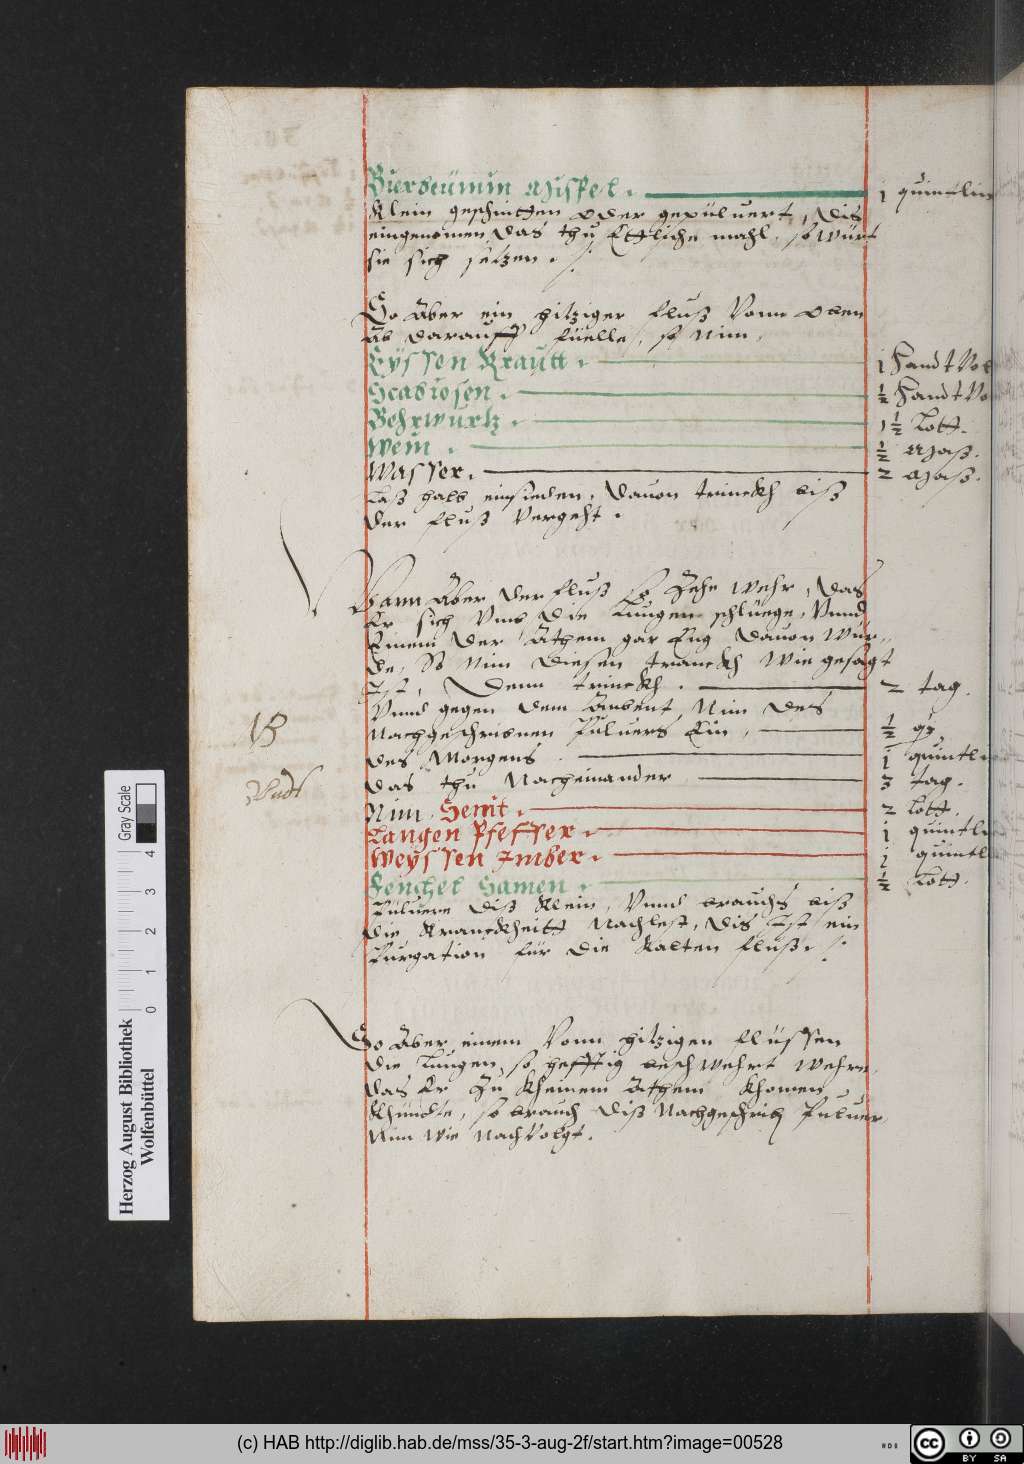 Bierbeümin Mispel. 1 quintlin
Klein geschnitten oder gepüluert, Dis
eingenomen, das thu Ettliche mahl, so würt
sie sich setzen.
So Aber ein hitziger fluß Vonn Oben
Ab darauff füelle, so Nim,
Eyssen Krautt. 1 Handt Vol
Scabiosen. ½ Handt Vo
Behrwurtz. 1½ Lott.
Wein. ½ Maß.
Wasser. 2 Maß.
Laß halb einsieden, dauon trinckh biß
der fluß Vergeht.
Wann Aber der fluß so Zehe Wehr, das
Er sich Vmb die Lungen schlüege, Vnnd
Einem der Athem gar Eng dauon Wür-
de, So Nim diesen tranckh Wie gesagt
Ist, Denn trinckh. 2 tag.
Vnnd gegen dem Aubent Nim des
Nachgeschribnen Puluers Ein, ½ q
des Morgens. 1 quintl
das thu Nacheinander 3 tag.
NB
Nim. Senit. 2 Lott.
Langen Pfeffer. 1 quintl
Weyssen Imber. 1 quintl
Fenchel Samen. ½ Lott.
Puluere diß Klein, Vnnd brauchs biß
die Kranckheitt Nachlest, dis Ist ein
Purgation für die Kalten fluß.
So Aber einem Vonn hitzigen flüssen
die Lungen so hefftig beschwehrt Wehre,
das Er Zu Kheinem Athem Khomen
Khündte, so brauch diß Nachgeschribn Puluer,
Nim Wie Nach Volgt.
Herzog August Bibliothek
Wolfenbüttel
0 1 2 3 4
Gray Scale
(c) HAB http://diglib.hab.de/mss/35-3-aug-2f/start.htm?image=00528
cc BY SA